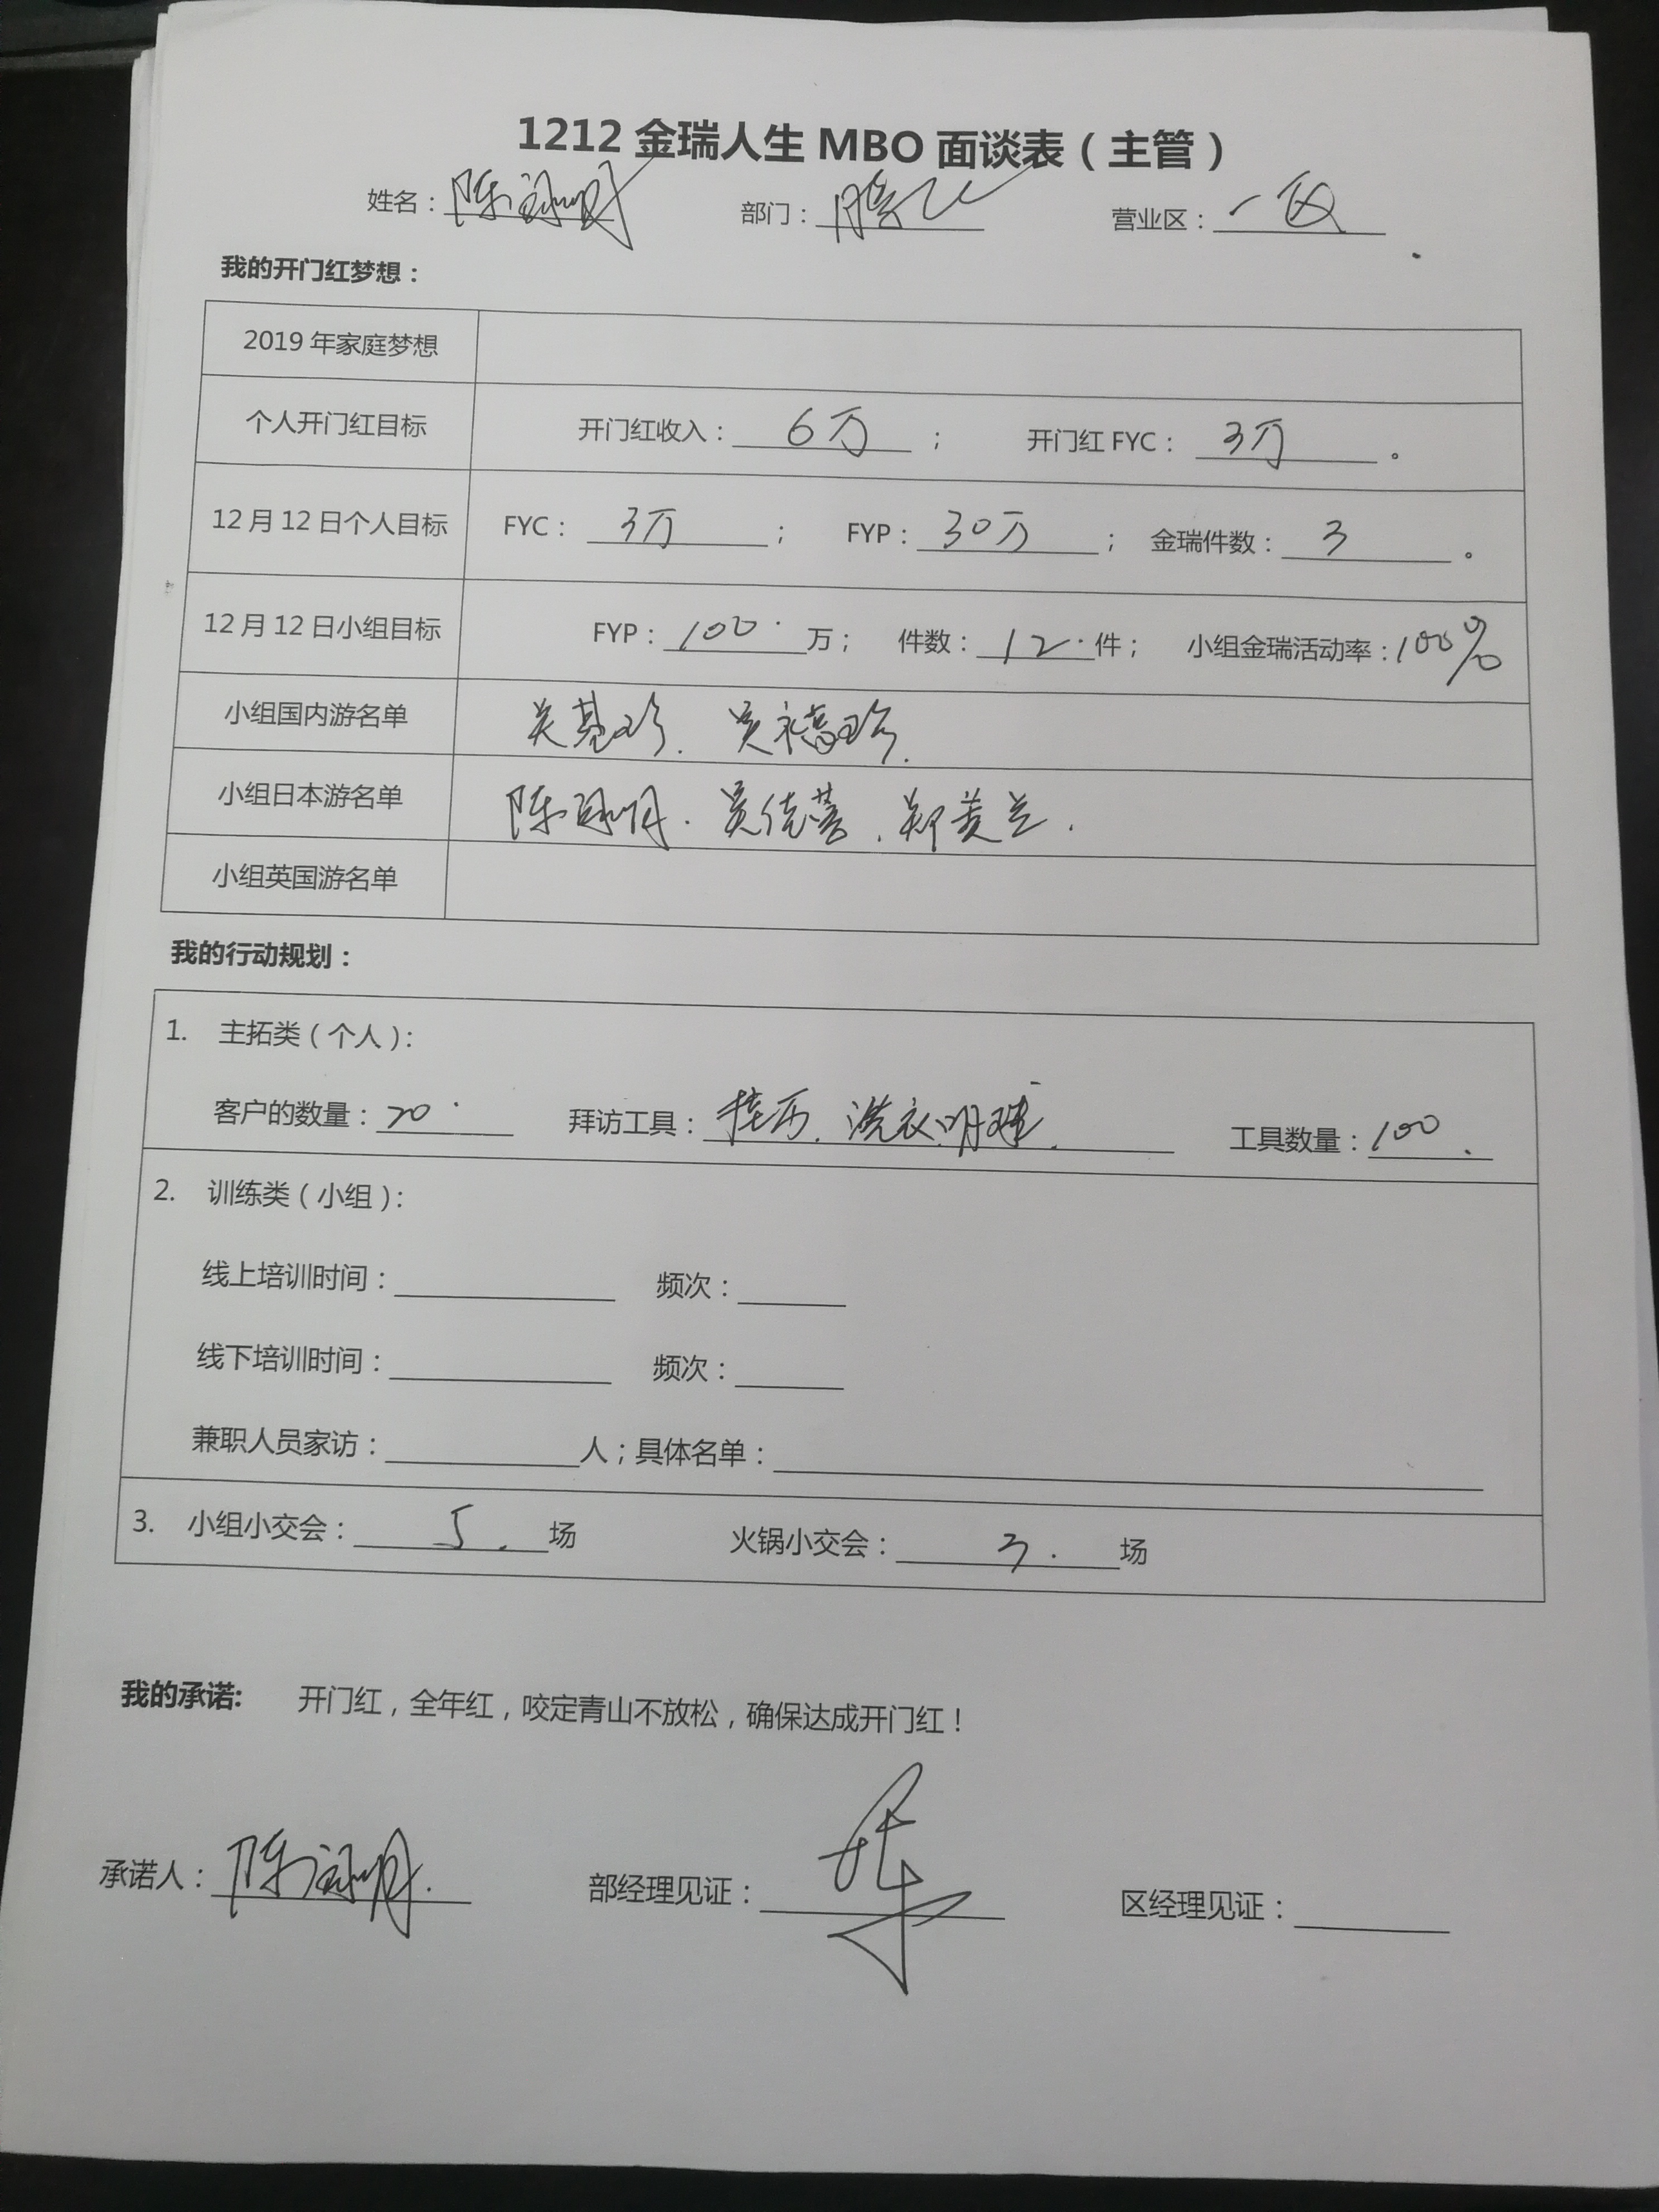 1212金瑞人生 MBO 面谈表（主管）
姓名：陈 部门：腾飞 营业区：一区
我的开门红梦想：
2019年家庭梦想
个人开门红目标 开门红收入：6万； 开门红 FYC：3万。
12月12日个人目标 FYC：3万； FYP：30万； 金瑞件数：3。
12月12日小组目标 FYP：100万； 件数：12件； 小组金瑞活动率：100%
小组国内游名单
小组日本游名单 郑美兰.
小组英国游名单
我的行动规划：
1. 主拓类（个人）：
客户的数量： 拜访工具：挂历、洗衣 工具数量：100
2. 训练类（小组）：
线上培训时间： 频次：
线下培训时间： 频次：
兼职人员家访： 人；具体名单：
3. 小组小交会：5.场 火锅小交会：3.场
我的承诺: 开门红，全年红，咬定青山不放松，确保达成开门红！
承诺人：陈 部经理见证： 区经理见证：